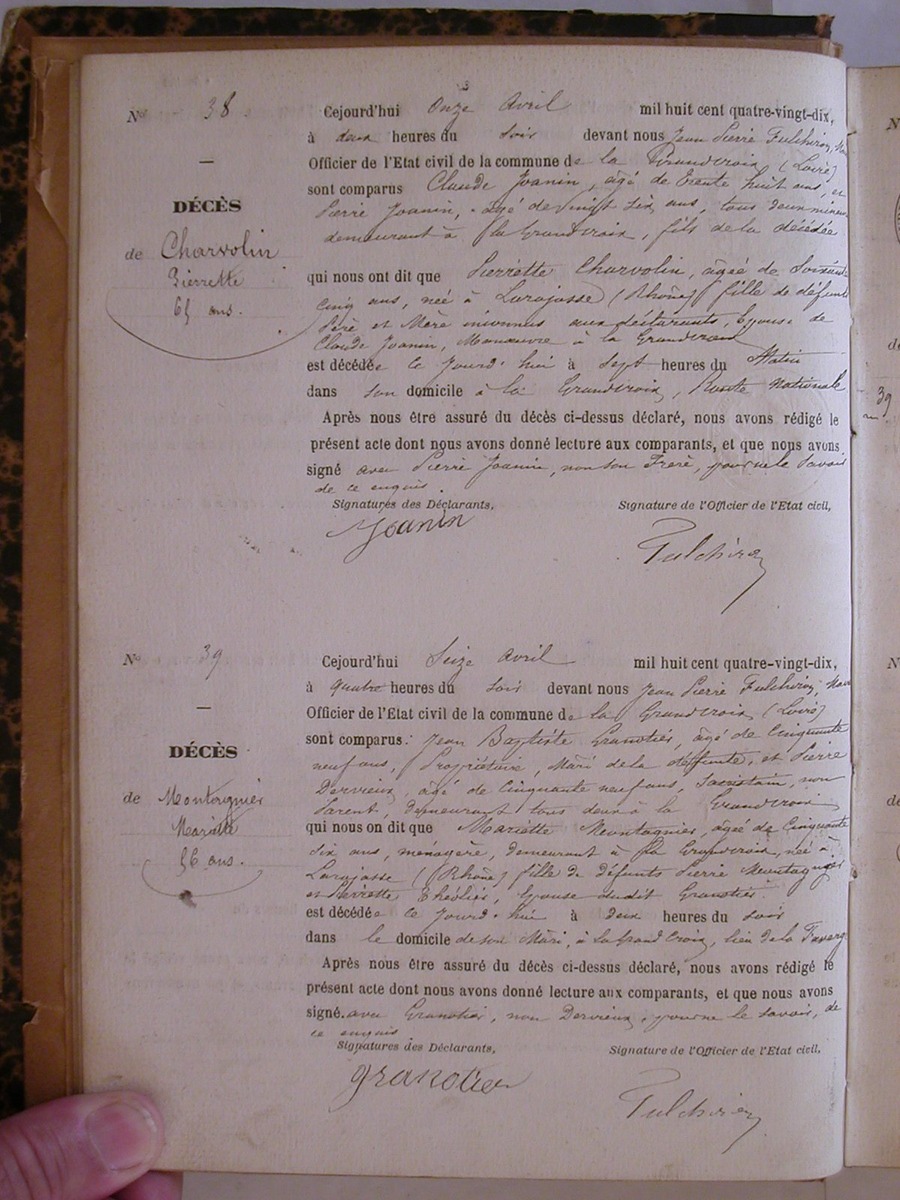 Nº 38
DÉCÈS
de Charvolin
Pierrette
65 ans.
Cejourd'hui Onze Avril mil huit cent quatre-vingt-dix,
à deux heures du soir devant nous Jean Pierre Fulchiron,
Officier de l'Etat civil de la commune de la Grandcroix (Loire)
sont comparus Claude Joanin, âgé de Trente huit ans, et
Pierre Joanin, âgé de vingt six ans, tous deux mineurs
demeurant à la Grandcroix, fils de la décédée
qui nous ont dit que Pierrette Charvolin, âgée de Soixante
cinq ans, née à Larajasse (Rhône) fille de défunts
Père et Mère inconnus aux déclarants, Epouse de
Claude Joanin, Manœuvre à la Grandcroix
est décédée ce jourd'hui à Sept heures du Matin
dans son domicile à la Grandcroix, Route Nationale
Après nous être assuré du décès ci-dessus déclaré, nous avons rédigé le
présent acte dont nous avons donné lecture aux comparants, et que nous avons
signé avec Pierre Joanin, non son Frere, pour ne le savoir
de ce enquis.
Signatures des Déclarants, Signature de l'Officier de l'Etat civil,
Joanin
Fulchiron
Nº 39
DÉCÈS
de Montagnier
Mariette
56 ans.
Cejourd'hui Seize Avril mil huit cent quatre-vingt-dix,
à quatre heures du soir devant nous Jean Pierre Fulchiron,
Officier de l'Etat civil de la commune de la Grandcroix (Loire)
sont comparus: Jean Baptiste Granotier, âgé de Cinquante
neuf ans, Propriétaire, Mari de la défunte, et Pierre
Dervieux, âgé de Cinquante neuf ans, Sacristain, non
Parent, demeurant tous deux à la Grandcroix
qui nous on dit que Mariette Montagnier, âgée de Cinquante
six ans, ménagère, demeurant à la Grandcroix, née à
Larajasse (Rhône) fille de défunts Pierre Montagnier
et Pierrette Epouse dudit Granotier
est décédée ce jourd'hui à deux heures du soir
dans le domicile de son Mari, à la Grand Croix, lieu de la
Après nous être assuré du décès ci-dessus déclaré, nous avons rédigé le
présent acte dont nous avons donné lecture aux comparants, et que nous avons
signé avec Granotier, non Dervieux, pour ne le savoir, de
ce enquis
Signatures des Déclarants, Signature de l'Officier de l'Etat civil,
granotier
Fulchiron
Nº
39
Nº